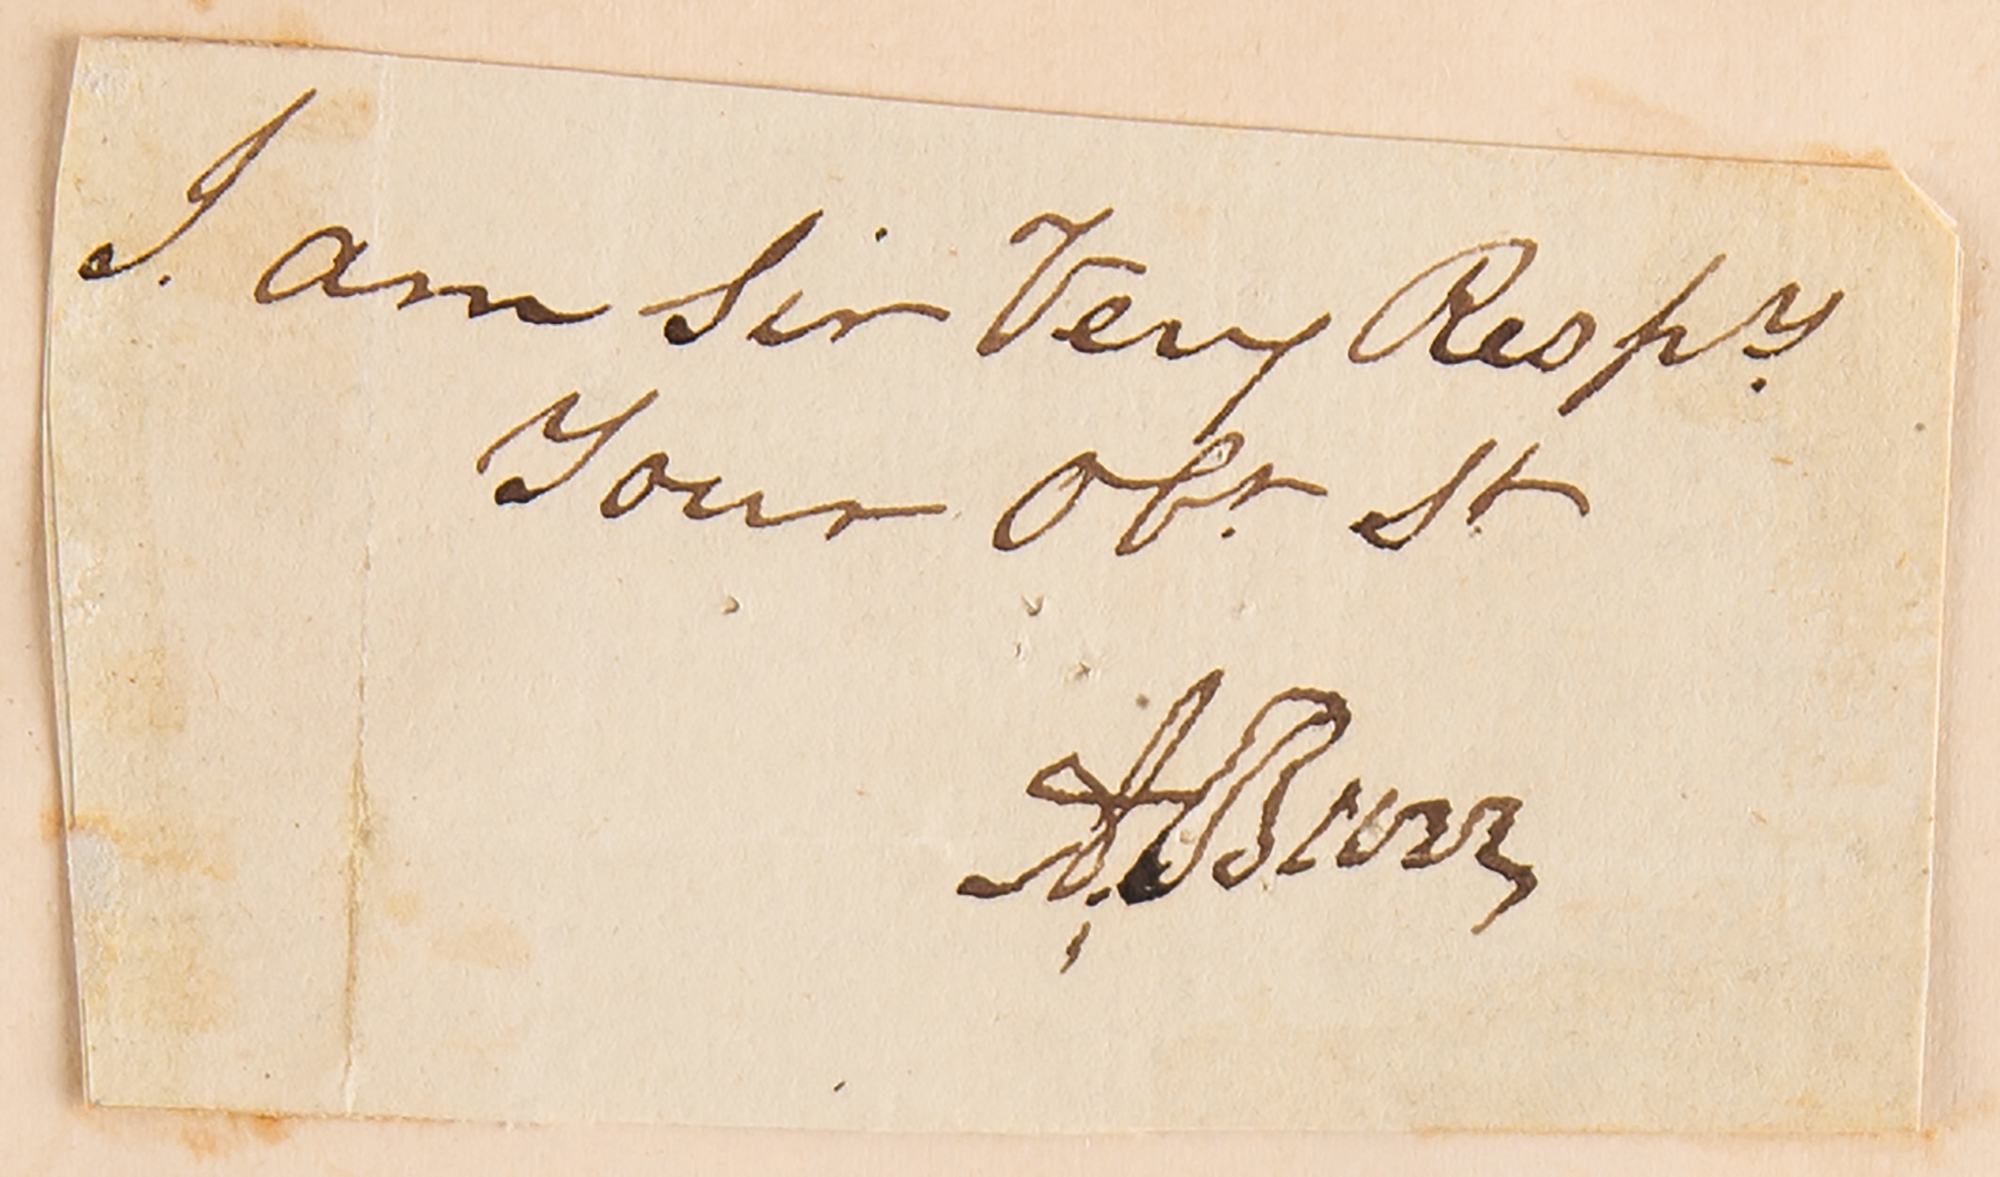 I. am Sir Very Respy.
Your Obt. St
A. Burr